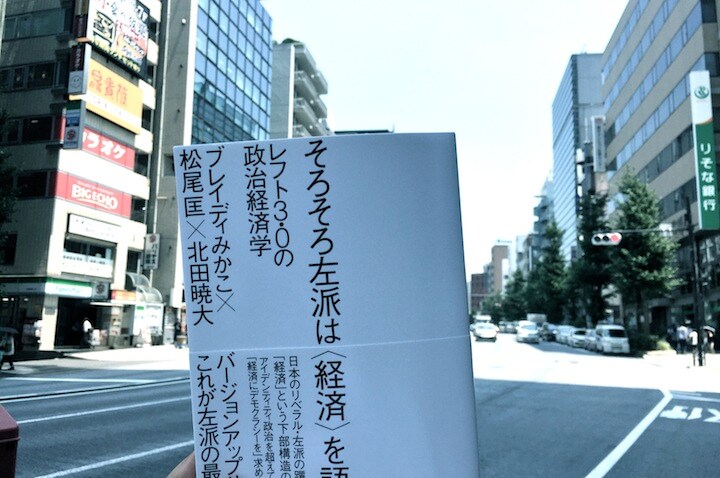 そろそろ左派は〈経済〉を語
レフト3.0の
政治経済学
ブレイディみかこ×
松尾匡×北田暁大
日本のリベラル・左派の躓
「経済」という下部構造の
アイデンティティ政治を超えて
「経済にデモクラシーを」求め
バージョンアップ
これが左派の最
カラオケ
BIGECHO
りそな銀行